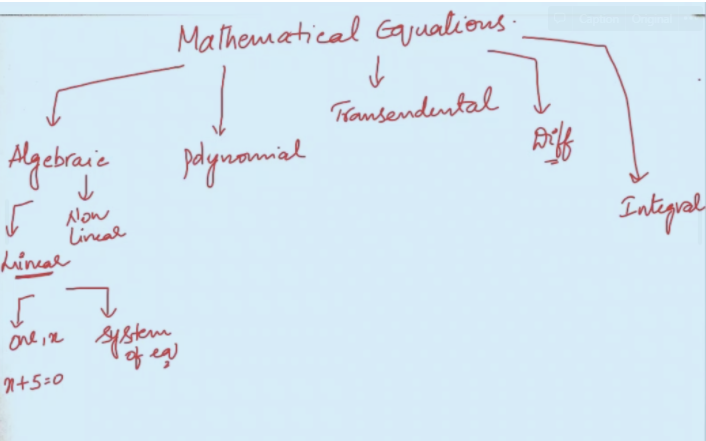 Mathematical Equations.
Algebraic
Polynomial
Transendental
Diff
Integral
Linear
Non
Linear
one, x
x+5=0
System
of eq